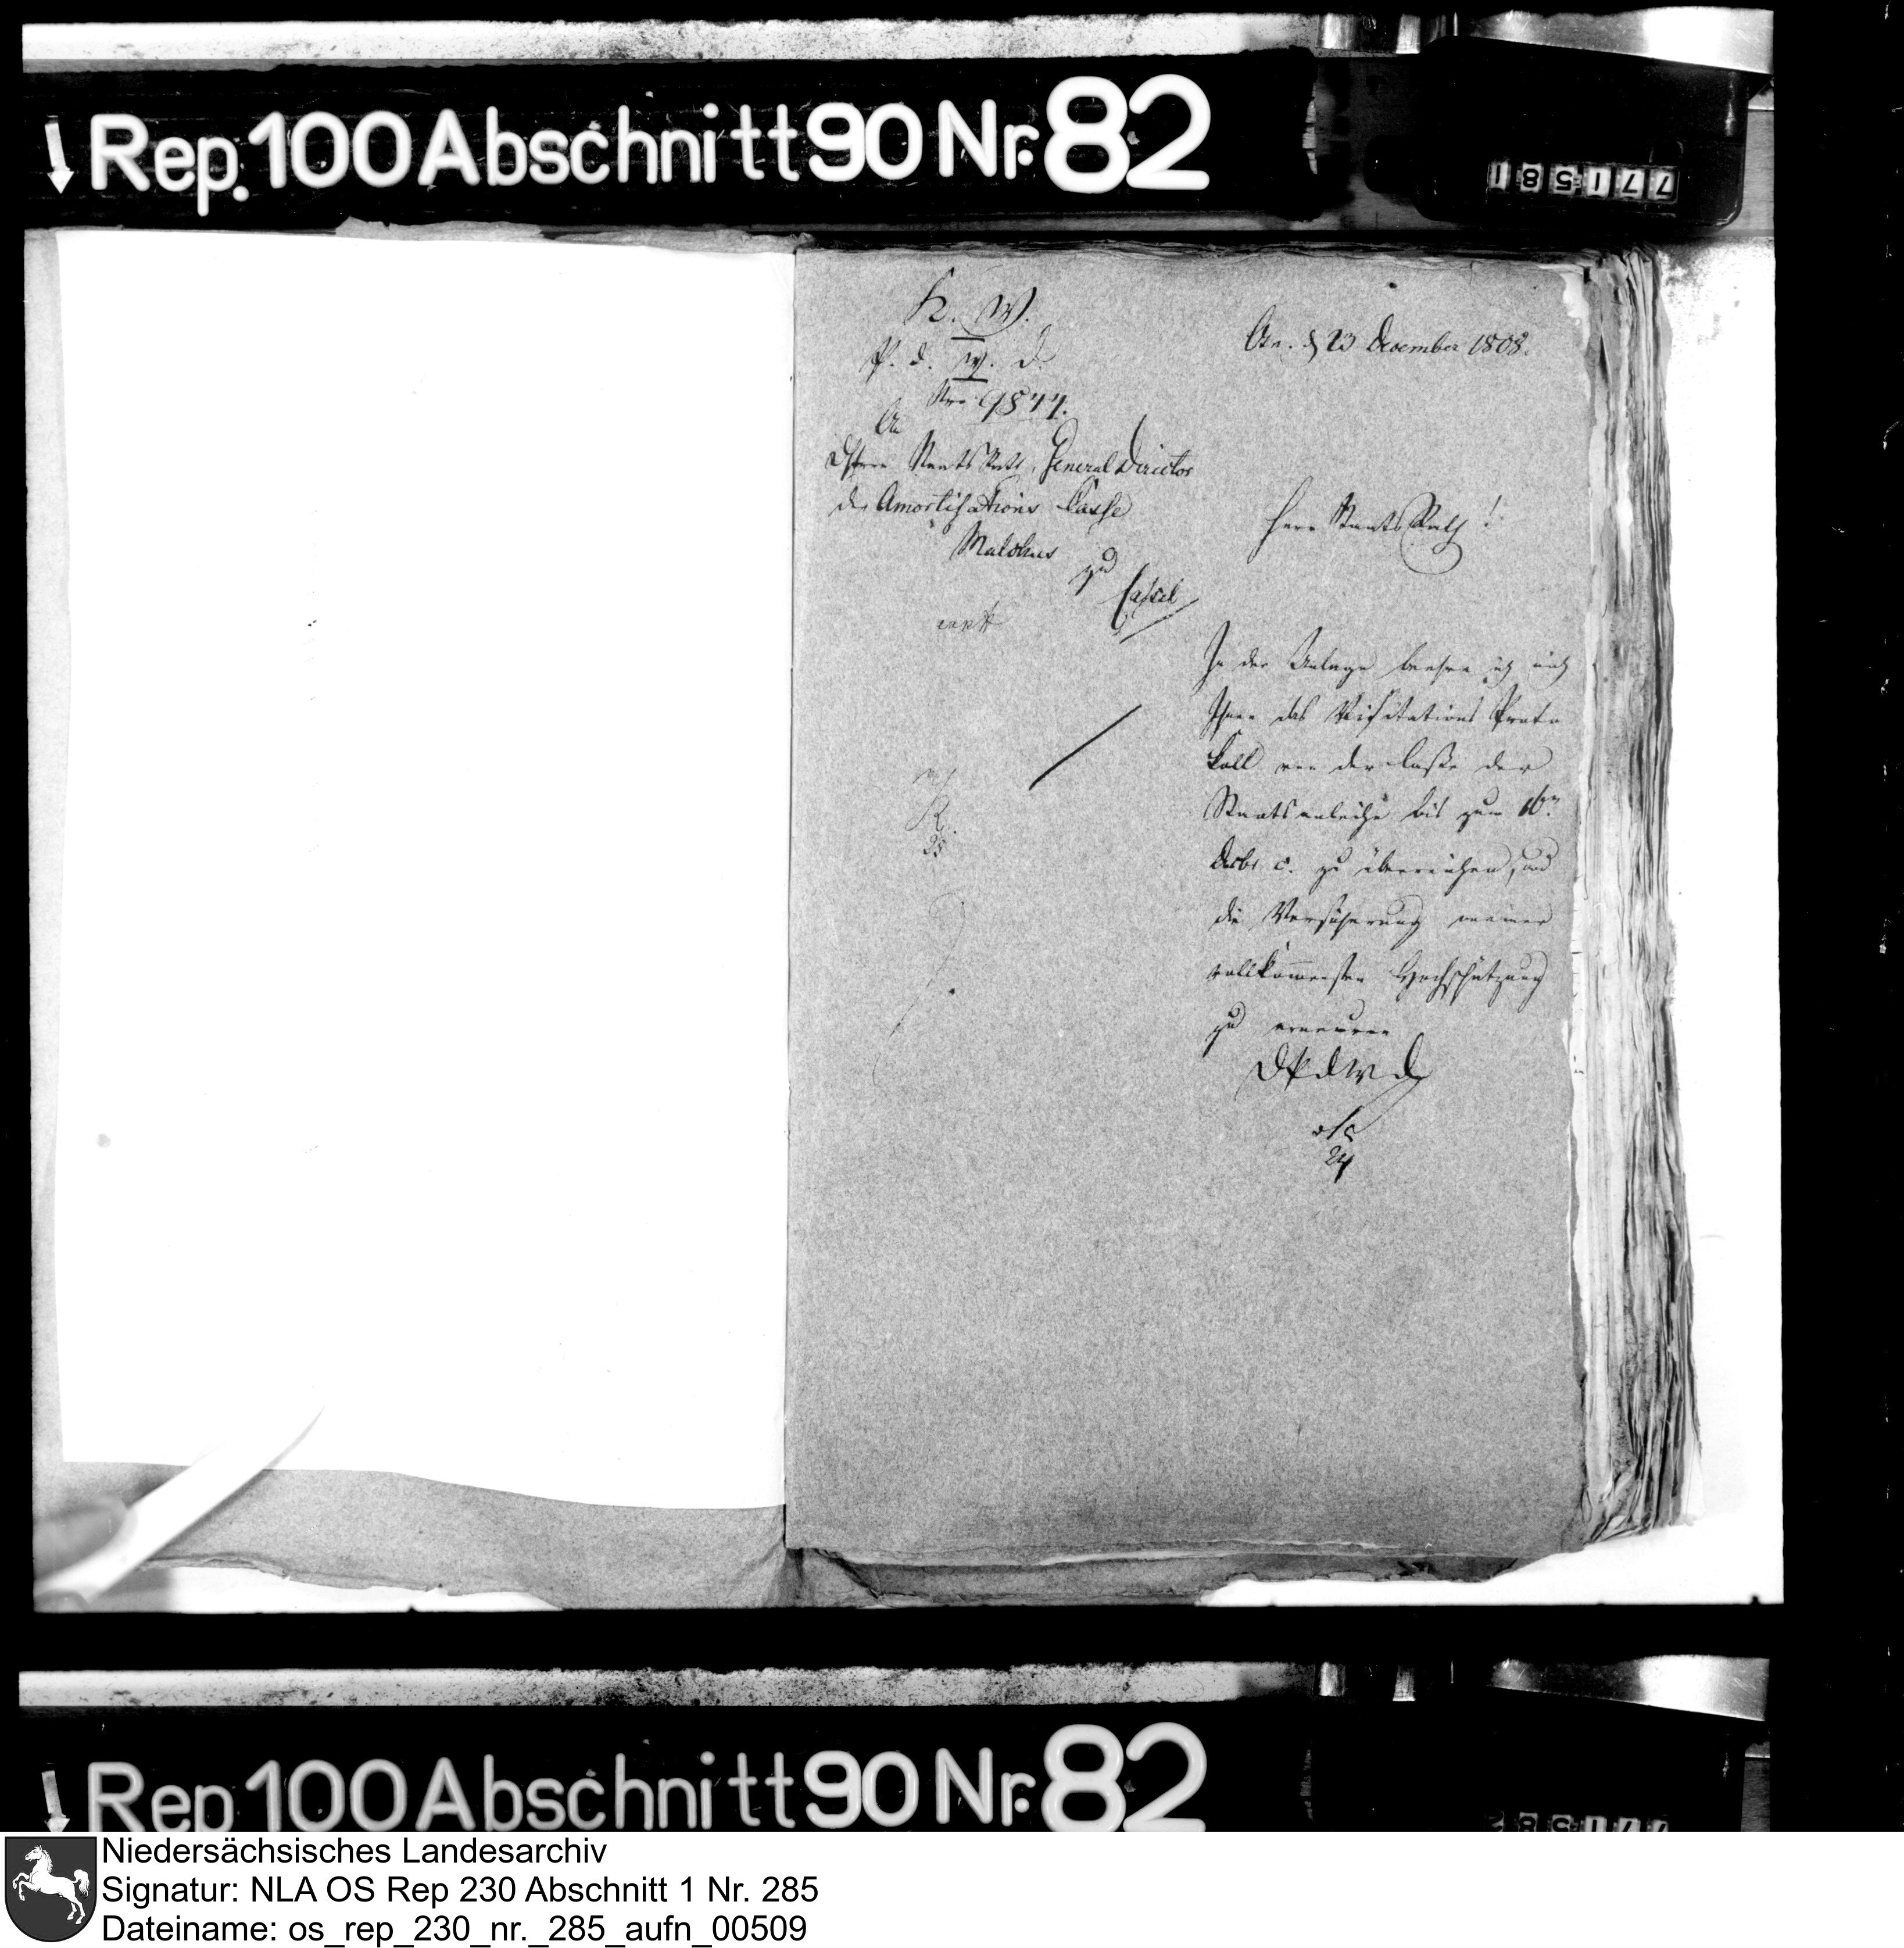 Rep. 100 Abschnitt 90 Nr. 82
1855177
K. W.
P. d. W. D.
Nro 9844.
An
Herrn StaatsRath, General Director
der Amortisations Casse
Malchus
zu
Cassel
Osn. d 23 December 1808.
Herr Staats Rath!
In der Anlage beehre ich mich
Ihnen das Visitations Proto
koll von der Casse der
Staatsanleihe bis zum 16ten
Decbr c. zu überreichen, und
die Versicherung meiner
vollkommensten Hochschätzung
zu erneuern
DPdWD
24
Rep 100 Abschnitt 90 Nr. 82
Niedersächsisches Landesarchiv
Signatur: NLA OS Rep 230 Abschnitt 1 Nr. 285
Dateiname: os_rep_230_nr._285_aufn_00509